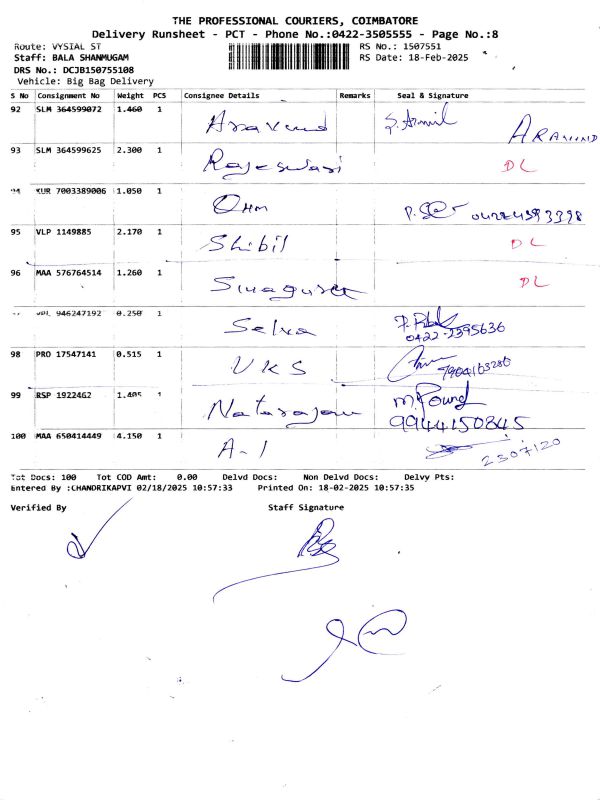 THE PROFESSIONAL COURIERS, COIMBATORE
Delivery Runsheet - PCT - Phone No.:0422-3505555 - Page No.:8
Route: VYSIAL ST RS No.: 1507551
Staff: BALA SHANMUGAM RS Date: 18-Feb-2025
DRS No.: DCJB150755108
Vehicle: Big Bag Delivery
S No Consignment No Weight PCS Consignee Details Remarks Seal & Signature
92 SLM 364599072 1.460 1 Aravind ARAVIND
93 SLM 364599625 2.300 1 Rajeswari DL
94 KUR 7003389006 1.050 1 OHM
95 VLP 1149885 2.170 1 Shibil DL
96 MAA 576764514 1.260 1 Sivaguru DL
946247192 0.250 1 Selva 0422-2395636
98 PRO 17547141 0.515 1 VKS
99 RSP 1922462 1.405 1 Natarajan 9944150845
100 MAA 650414449 4.150 1 A-1 2307120
Tot Docs: 100 Tot COD Amt: 0.00 Delvd Docs: Non Delvd Docs: Delvy Pts:
Entered By :CHANDRIKAPVI 02/18/2025 10:57:33 Printed On: 18-02-2025 10:57:35
Verified By Staff Signature